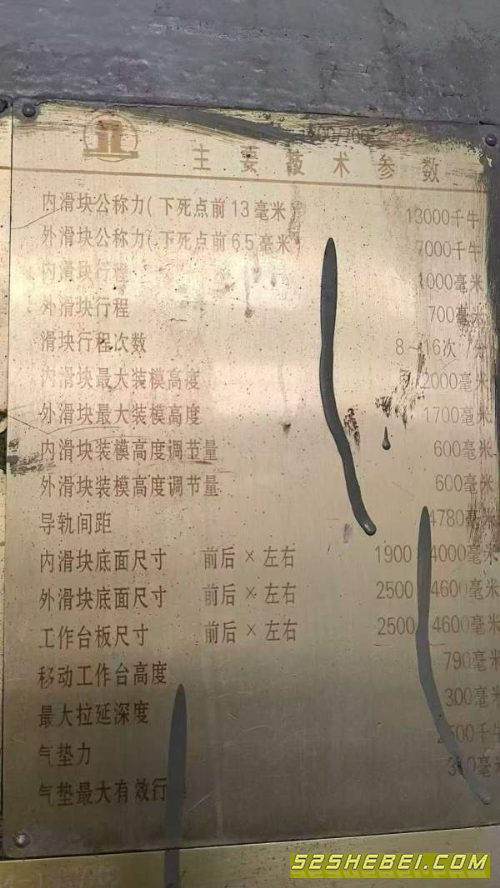 主要技术参数
内滑块公称力(下死点前13毫米) 13000千牛
外滑块公称力(下死点前6.5毫米) 7000千牛
内滑块行程 1000毫米
外滑块行程 700毫米
滑块行程次数 8—16次/分
内滑块最大装模高度 2000毫米
外滑块最大装模高度 1700毫米
内滑块装模高度调节量 600毫米
外滑块装模高度调节量 600毫米
导轨间距 4780毫米
内滑块底面尺寸 前后×左右 1900 4000毫米
外滑块底面尺寸 前后×左右 2500 4600毫米
工作台板尺寸 前后×左右 2500 4600毫米
移动工作台高度 790毫米
最大拉延深度 300毫米
气垫力 千牛
气垫最大有效行 毫米
52SHEBEI.COM